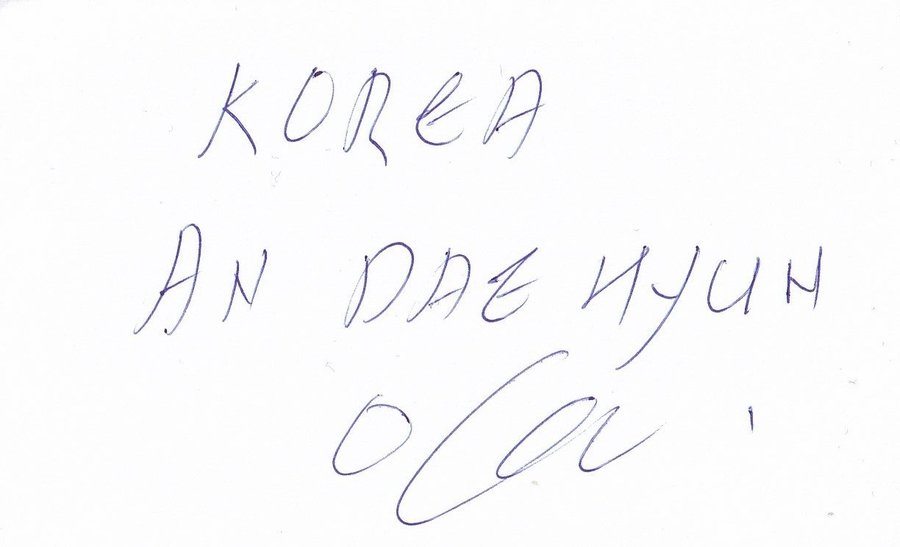 KOREA
AN DAE HYUN